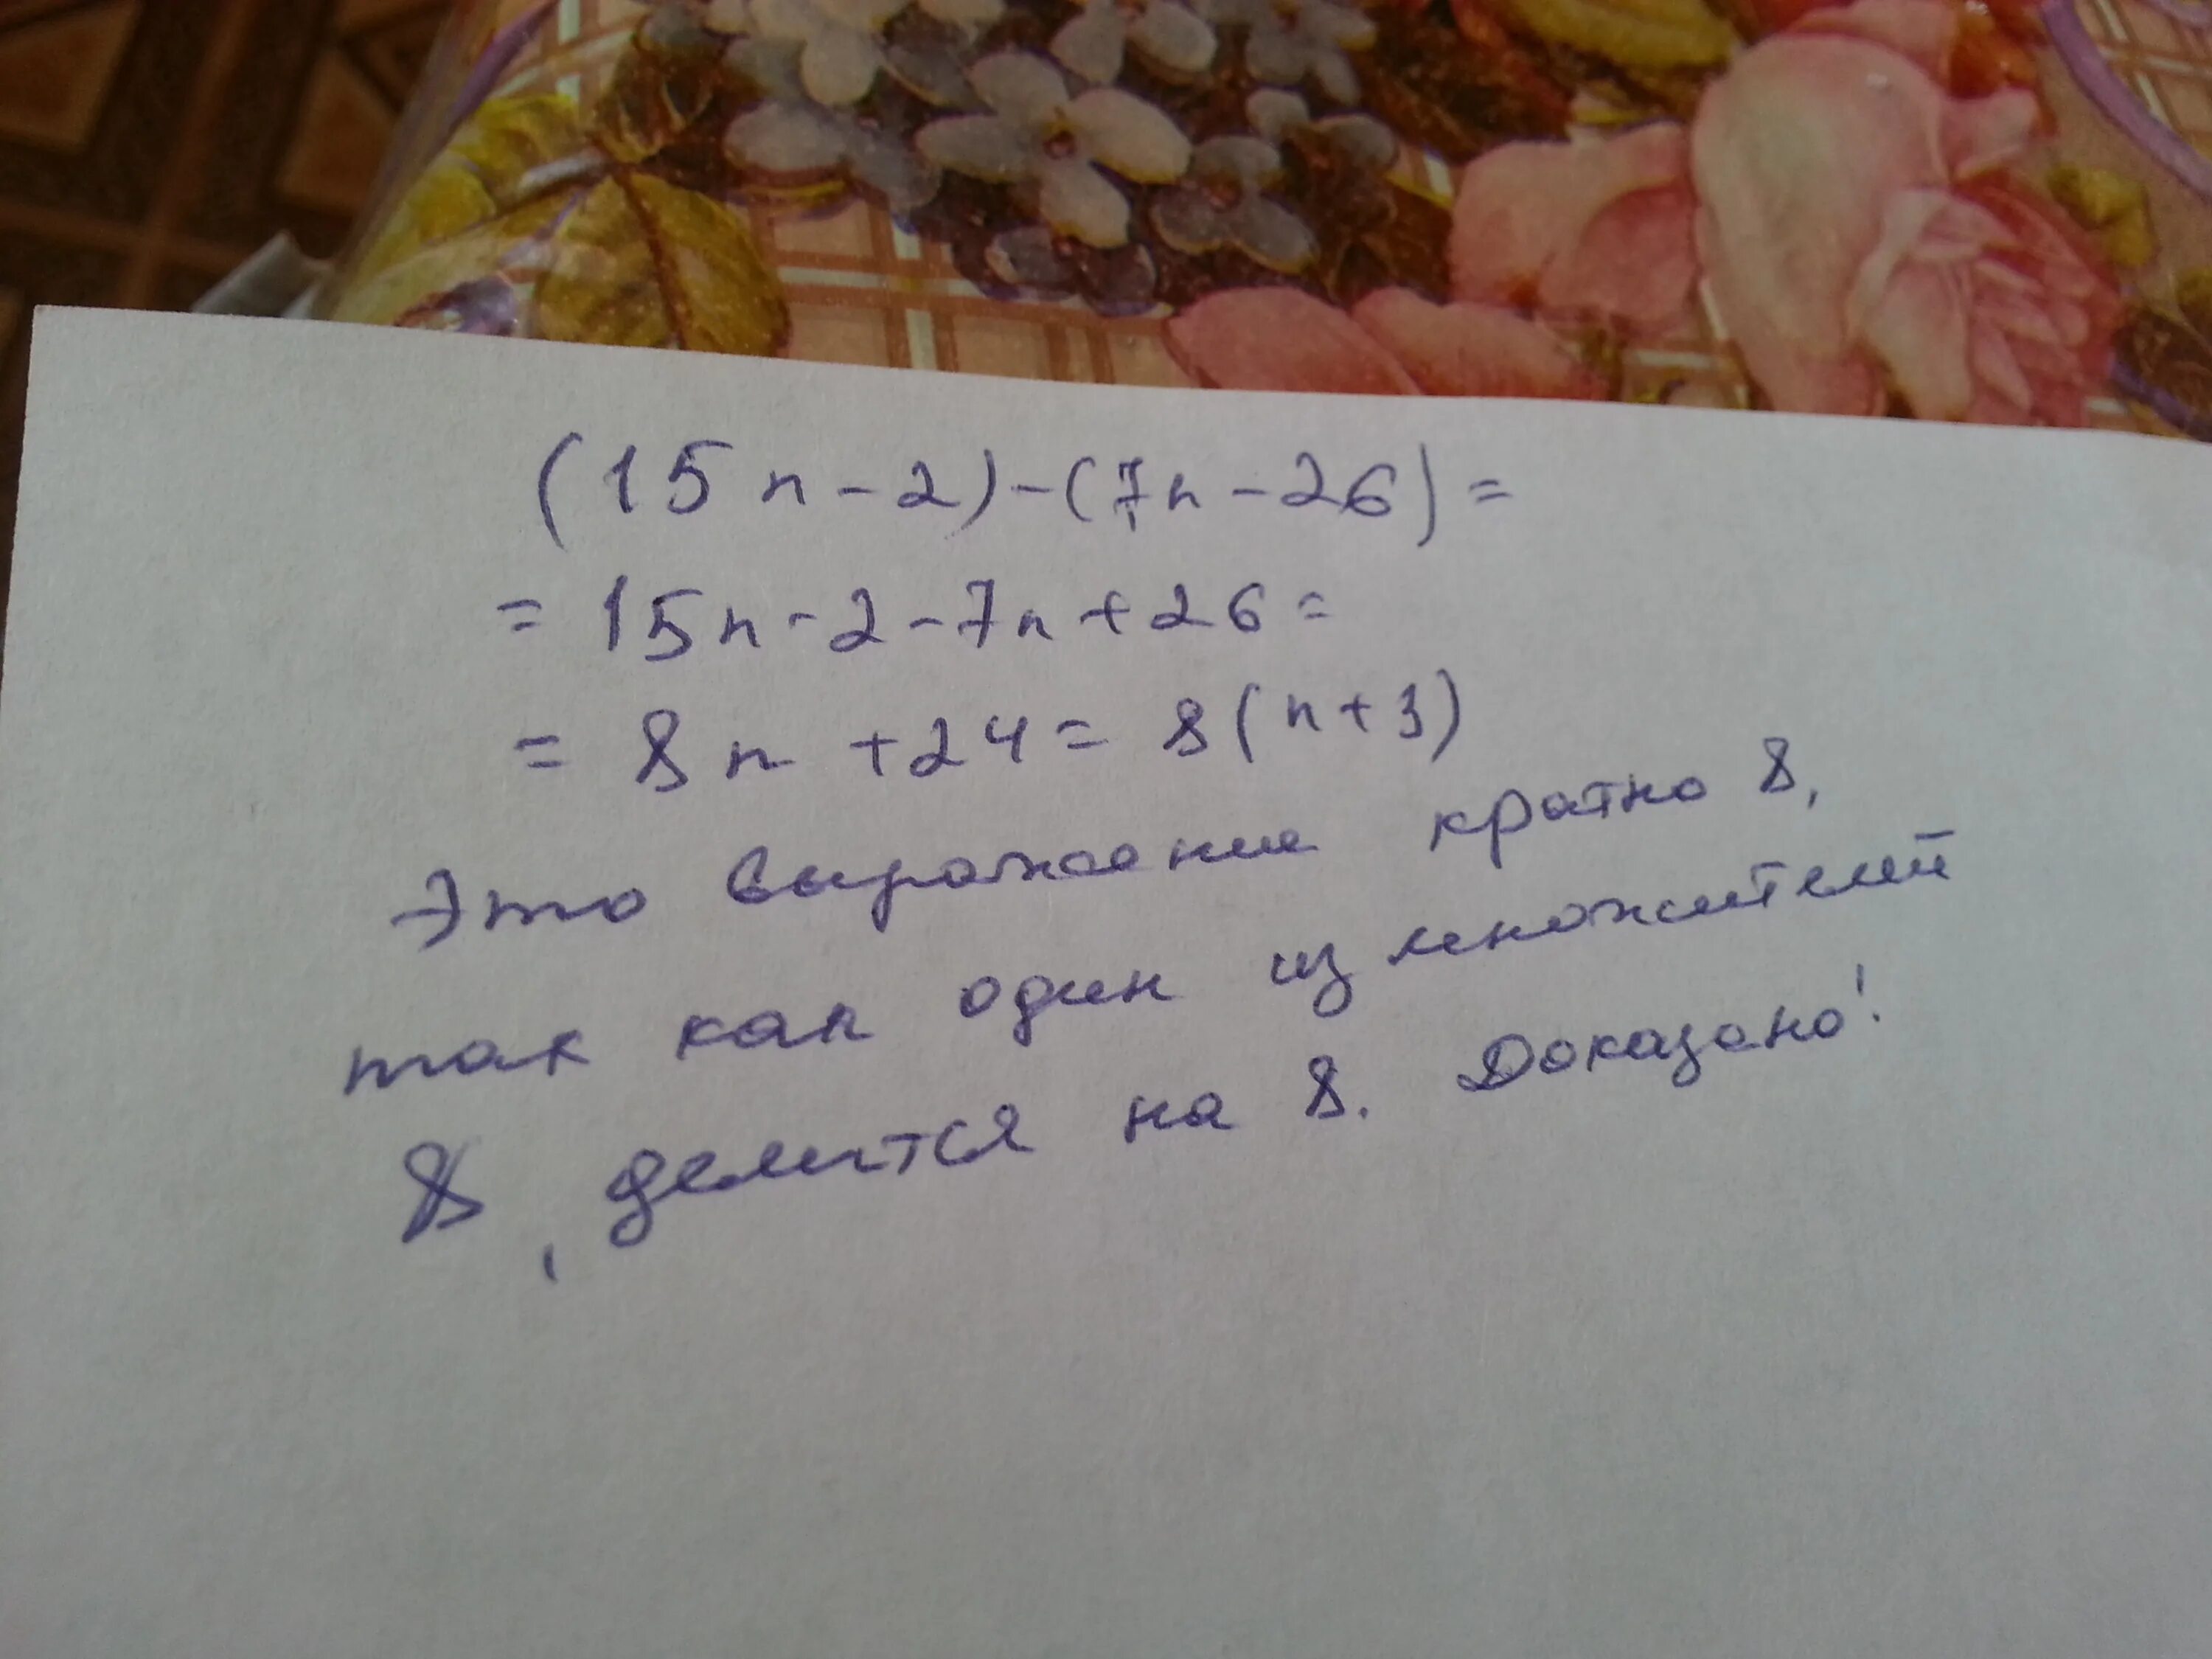 (15n-2)-(7n-26)=
=15n-2-7n+26=
=8n+24=8(n+3)
Это выражение кратно 8,
так как один из множителей
8, делится на 8. Доказано!